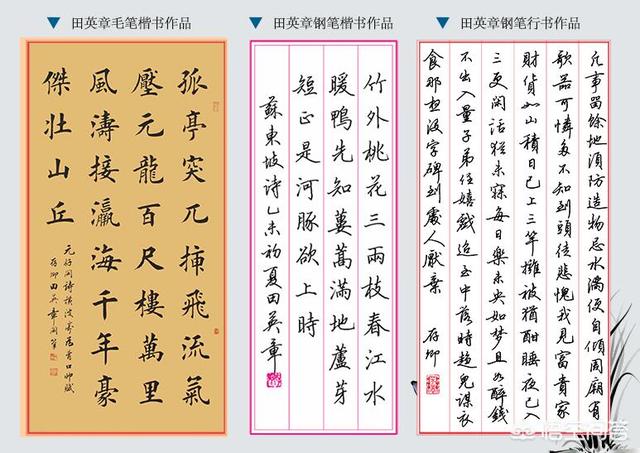 田英章毛笔楷书作品
田英章钢笔楷书作品
田英章钢笔行书作品
孤亭突兀插飛流氣
壓元龍百尺樓萬里
風濤接瀛海千年豪
傑壯山丘
元好問詩橫波亭為青口帥賦
存卿田英章
竹外桃花三兩枝春江水
暖鴨先知蔞蒿滿地蘆芽
短正是河豚欲上時
蘇東坡诗乙未初夏田英章
凡事留餘地須防造物忌水滿便自傾周廟有
欹器可憐多不知到頭徒悲愧我見富貴家
財貨如山積日已上三竿擁被猶酣睡夜已入
三更闲話猶未寐每日樂未央如夢且如醉錢
不出入量子弟任嬉戲迨至中落時兒謀衣
食那想没字碑到處人厭棄
存卿
悟空问答